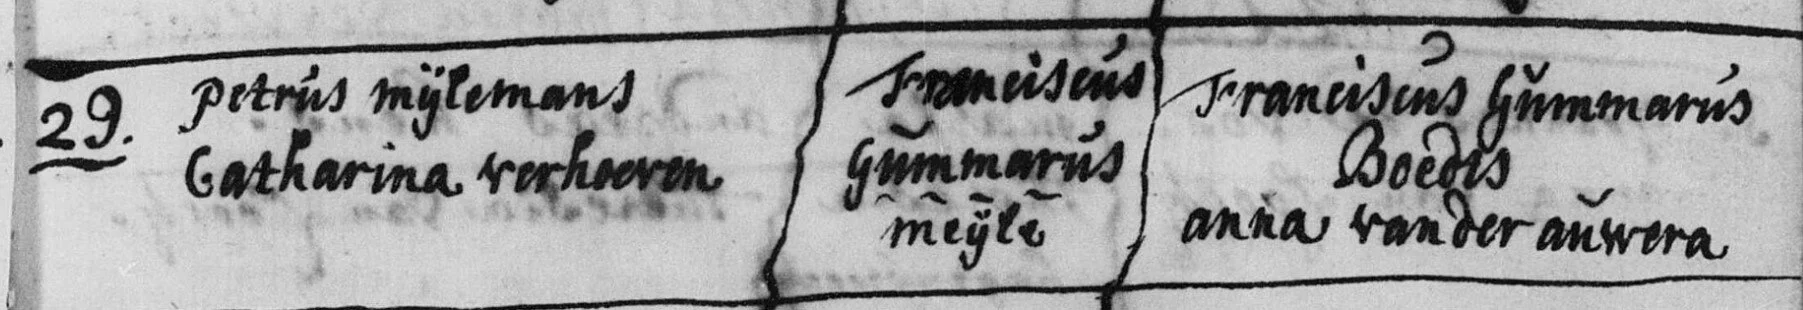 29.
Petrus mÿlemans
Catharina verhoeven
Franciscus
Gummarus
meÿle
Franciscus Gummarus
Boedts
anna vander auwera